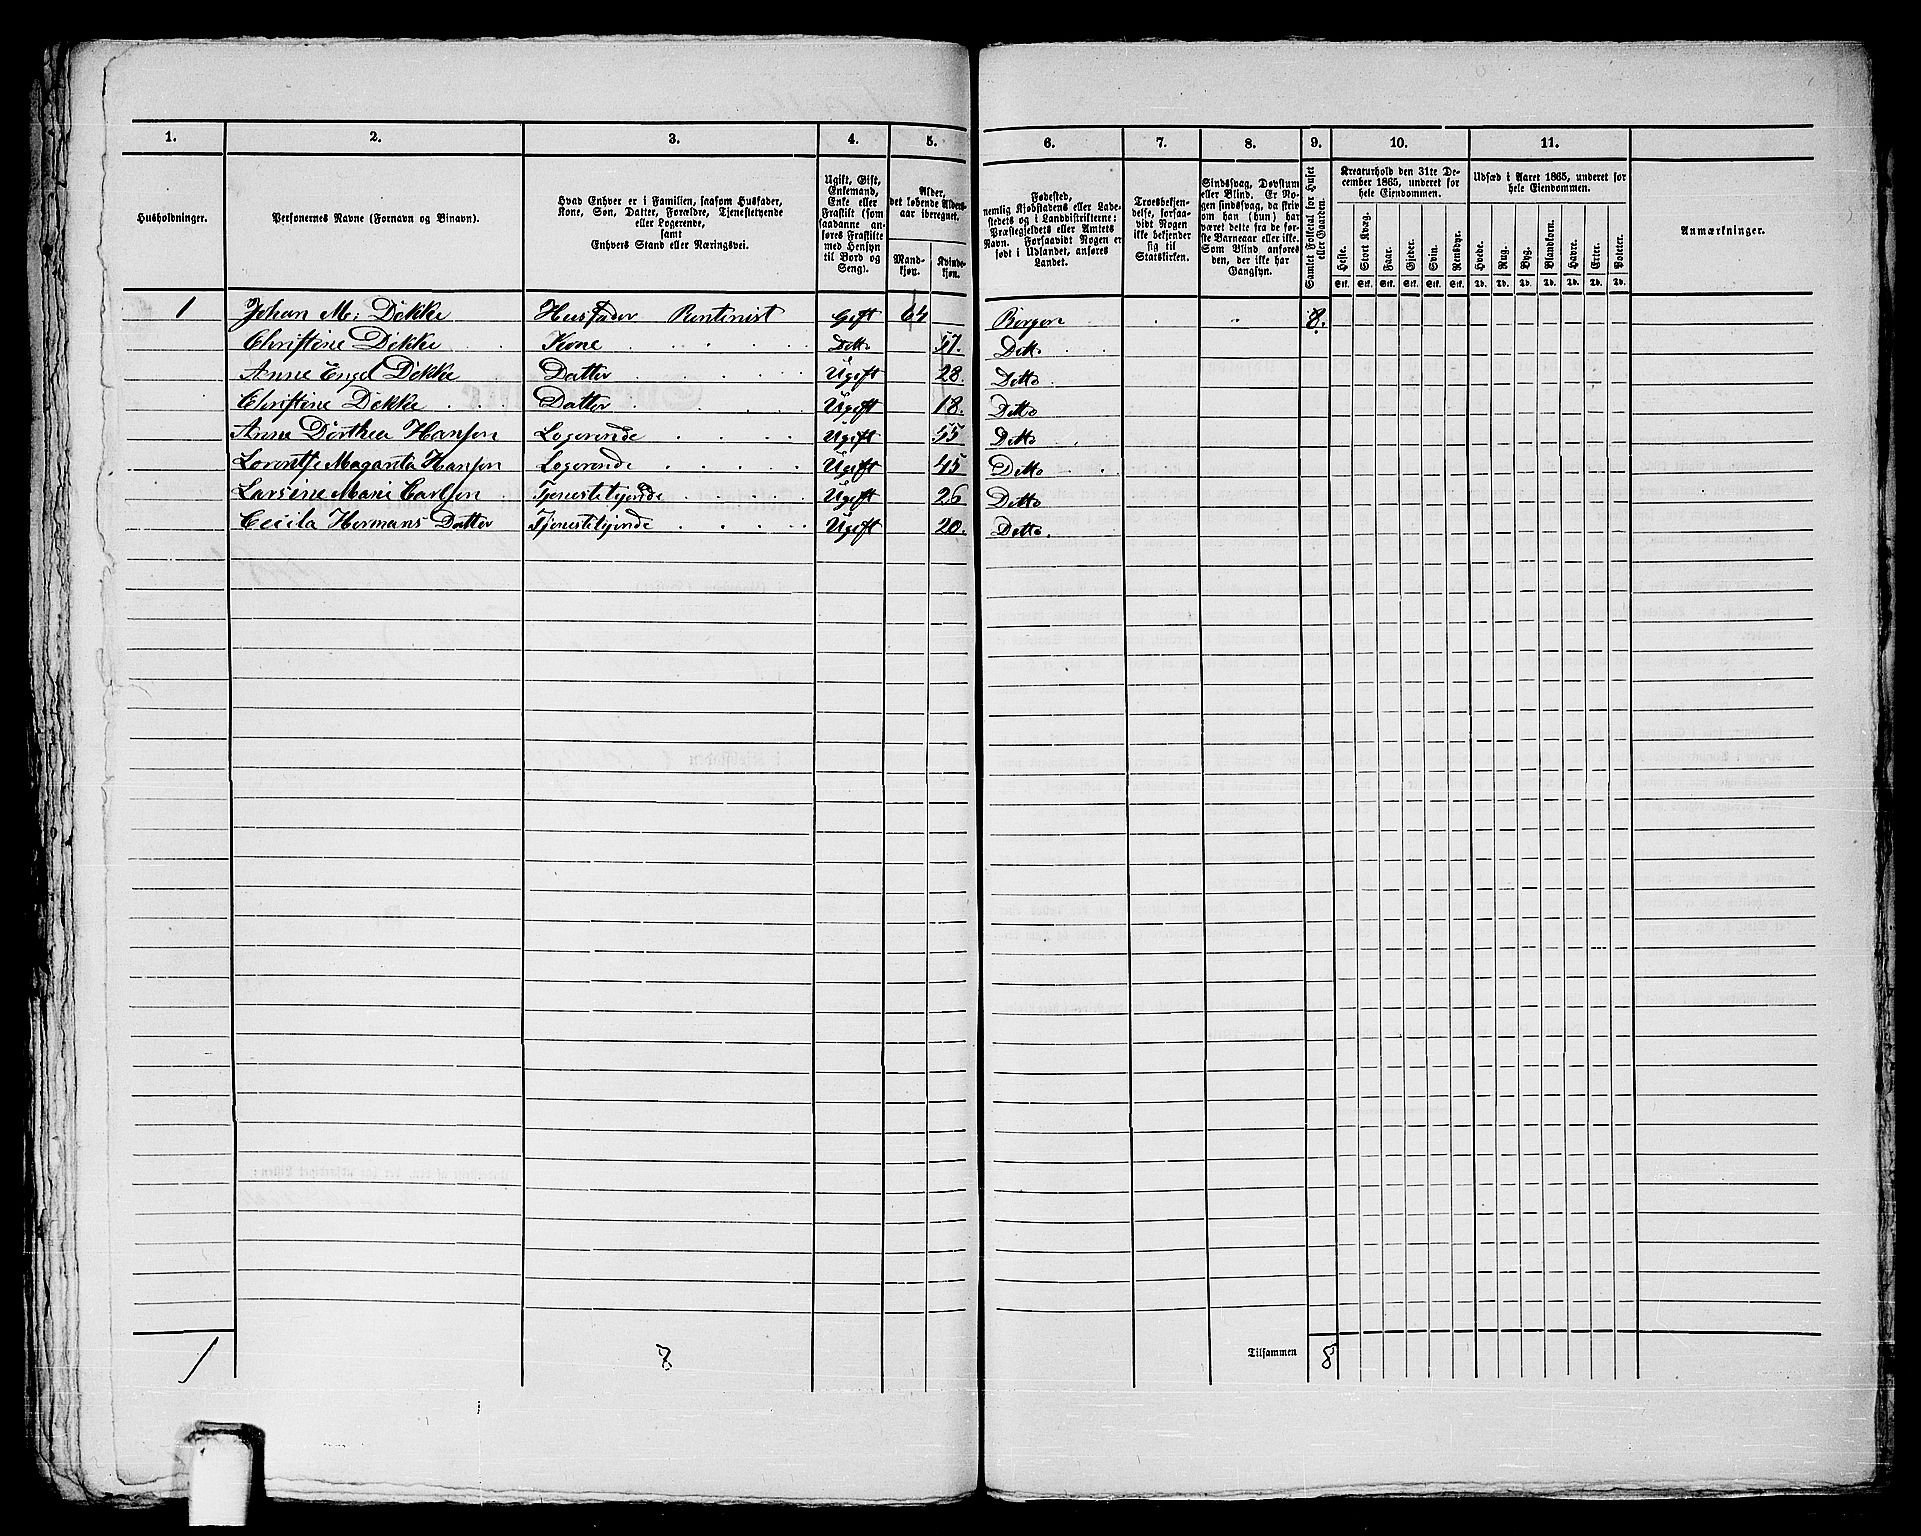 1. 2. 3. 4. 5. 6. 7. 8. 9. 10. 11.
Husholdninger.
Personernes Navne (Fornavn og Binavn).
Hvad Enhver er i Familien, saasom Husfader,
Kone, Søn, Datter, Forældre, Tjenestetyende
eller Logerende,
samt
Enhvers Stand eller Næringsvei.
Ugift, Gift,
Enkemand,
Enke eller
Fraskilt (som
saadanne an-
føres Fraskilte
med Hensyn
til Bord og
Seng).
Alder,
det løbende Alders-
aar iberegnet.
Mand-
kjøn.
Kvinde-
kjøn.
Fødested,
nemlig Kjøbstadens eller Lade-
stedets og i Landdistrikterne:
Præstegjeldets eller Amtets
Navn. Forsaavidt Nogen er
født i Udlandet, anføres
Landet.
Troesbekjen-
delse, forsaa-
vidt Nogen
ikke bekjender
sig til
Statskirken.
Sindssvag, Døvstum
eller Blind. Er No-
gen sindssvag, da skriv
om han (hun) har
været dette fra de før-
ste Barneaar eller ikke.
Som Blind anføres
den, der ikke har
Gangsyn.
Samlet Folketal for Huset
eller Gaarden.
Kreaturhold den 31te De-
cember 1865, underet for
hele Eiendommen.
Heste. Stort Kvæg. Faar. Gjeder. Svin. Rensdyr.
Stk. Stk. Stk. Stk. Stk. Stk.
Udsæd i Aaret 1865, underet for
hele Eiendommen.
Hvede. Rug. Byg. Blandkorn. Havre. Erter. Poteter.
Td. Td. Td. Td. Td. Td. Td.
Anmærkninger.
1 Johan M: Dekke Husfader Rentenist Gift 64 Bergen 8.
Christine Dekke Kone Ditto 57. Ditto
Anne Engel Dekke Datter Ugift 28. Ditto
Christine Dekke Datter Ugift 18. Ditto
Anne Dorthea Hansen Logerende Ugift 55 Ditto
Lorentse Maganta Hansen Logerende Ugift 45 Ditto
Larsine Marie Carlsen Tjenestetyende Ugift 26 Ditto
Cecila Hermans Datter Tjenestetyende Ugift 20. Ditto.
1 8 Tilsammen 8